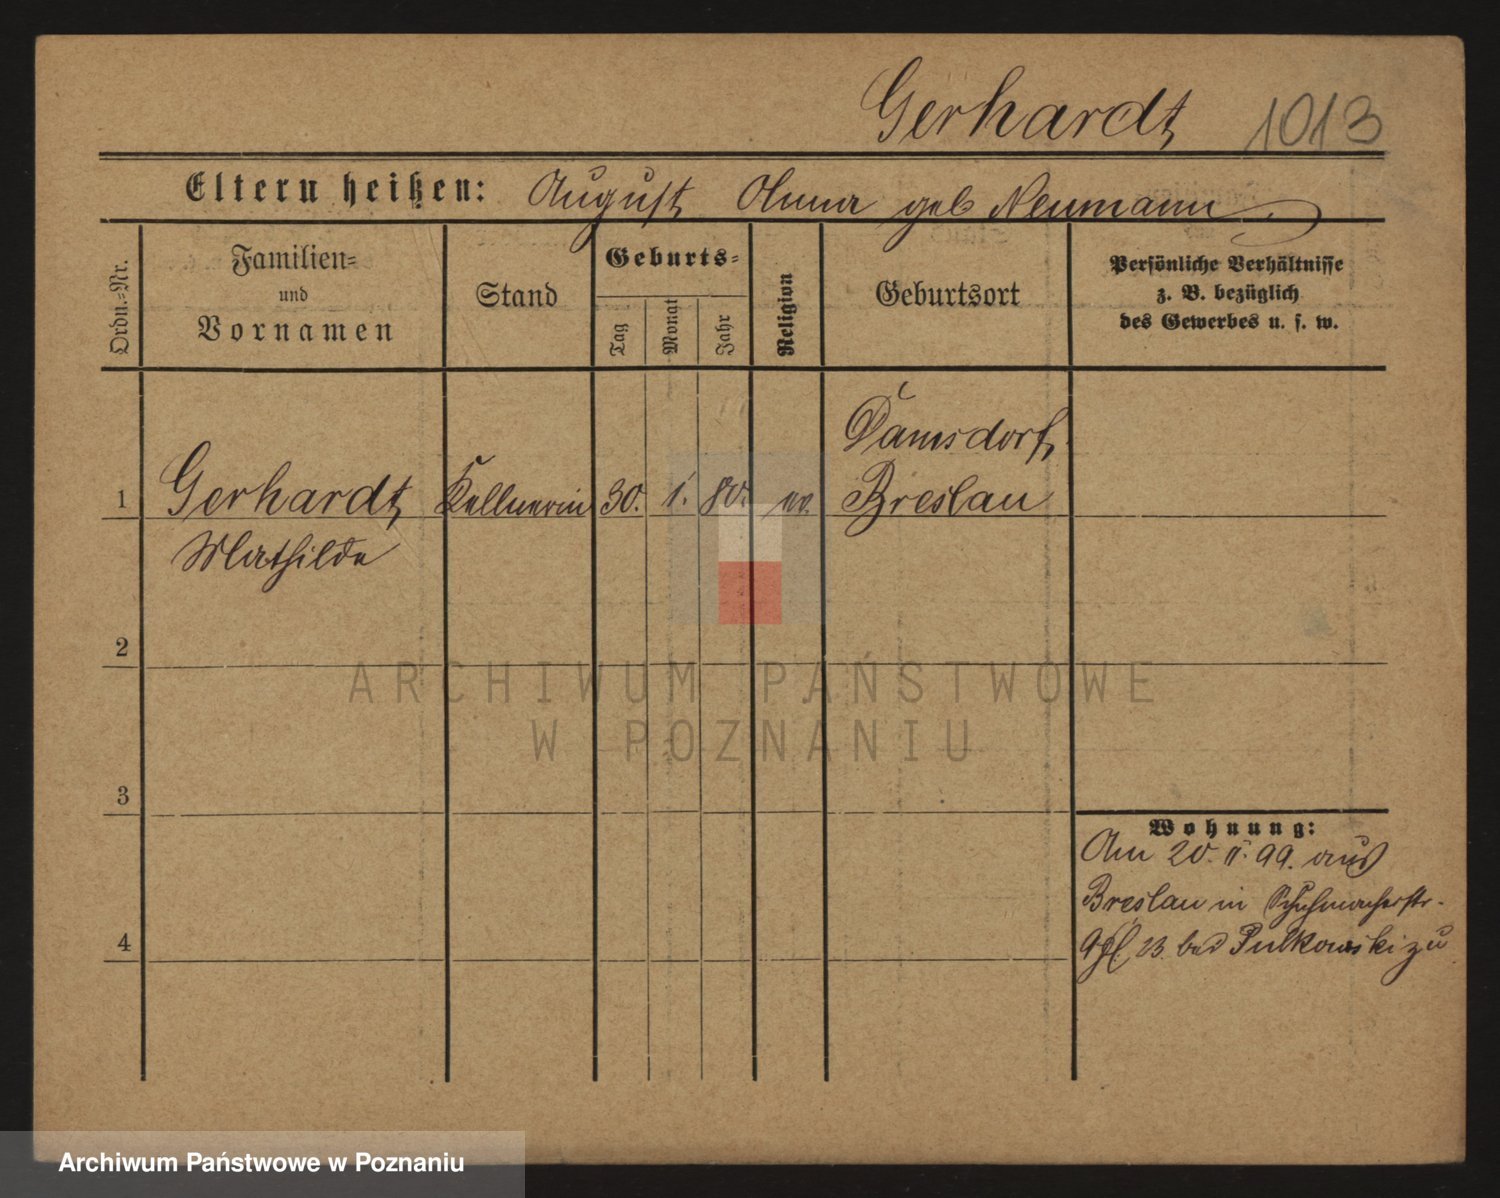 Gerhardt 1013
Eltern heißen: August Anna geb Neumann
Ordn.-Nr.
Familien-
und
Vornamen
Stand
Geburts-
Tag
Monat
Jahr
Religion
Geburtsort
Persönliche Verhältnisse
z. B. bezüglich
des Gewerbes u. s. w.
Damsdorf
1 Gerhardt Kellnerin 30. 1. 80. ev. Breslau
Mathilde
2
3
4
Wohnung:
Am 20. II. 99. aus
Breslau in Schuhmacherstr.
bei Pulkowski zu
ARCHIWUM PAŃSTWOWE
W POZNANIU
Archiwum Państwowe w Poznaniu